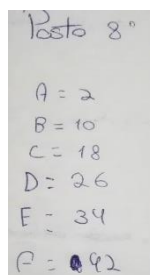 Posto 8°
A = 2
B = 10
C = 18
D = 26
E = 34
F = 42